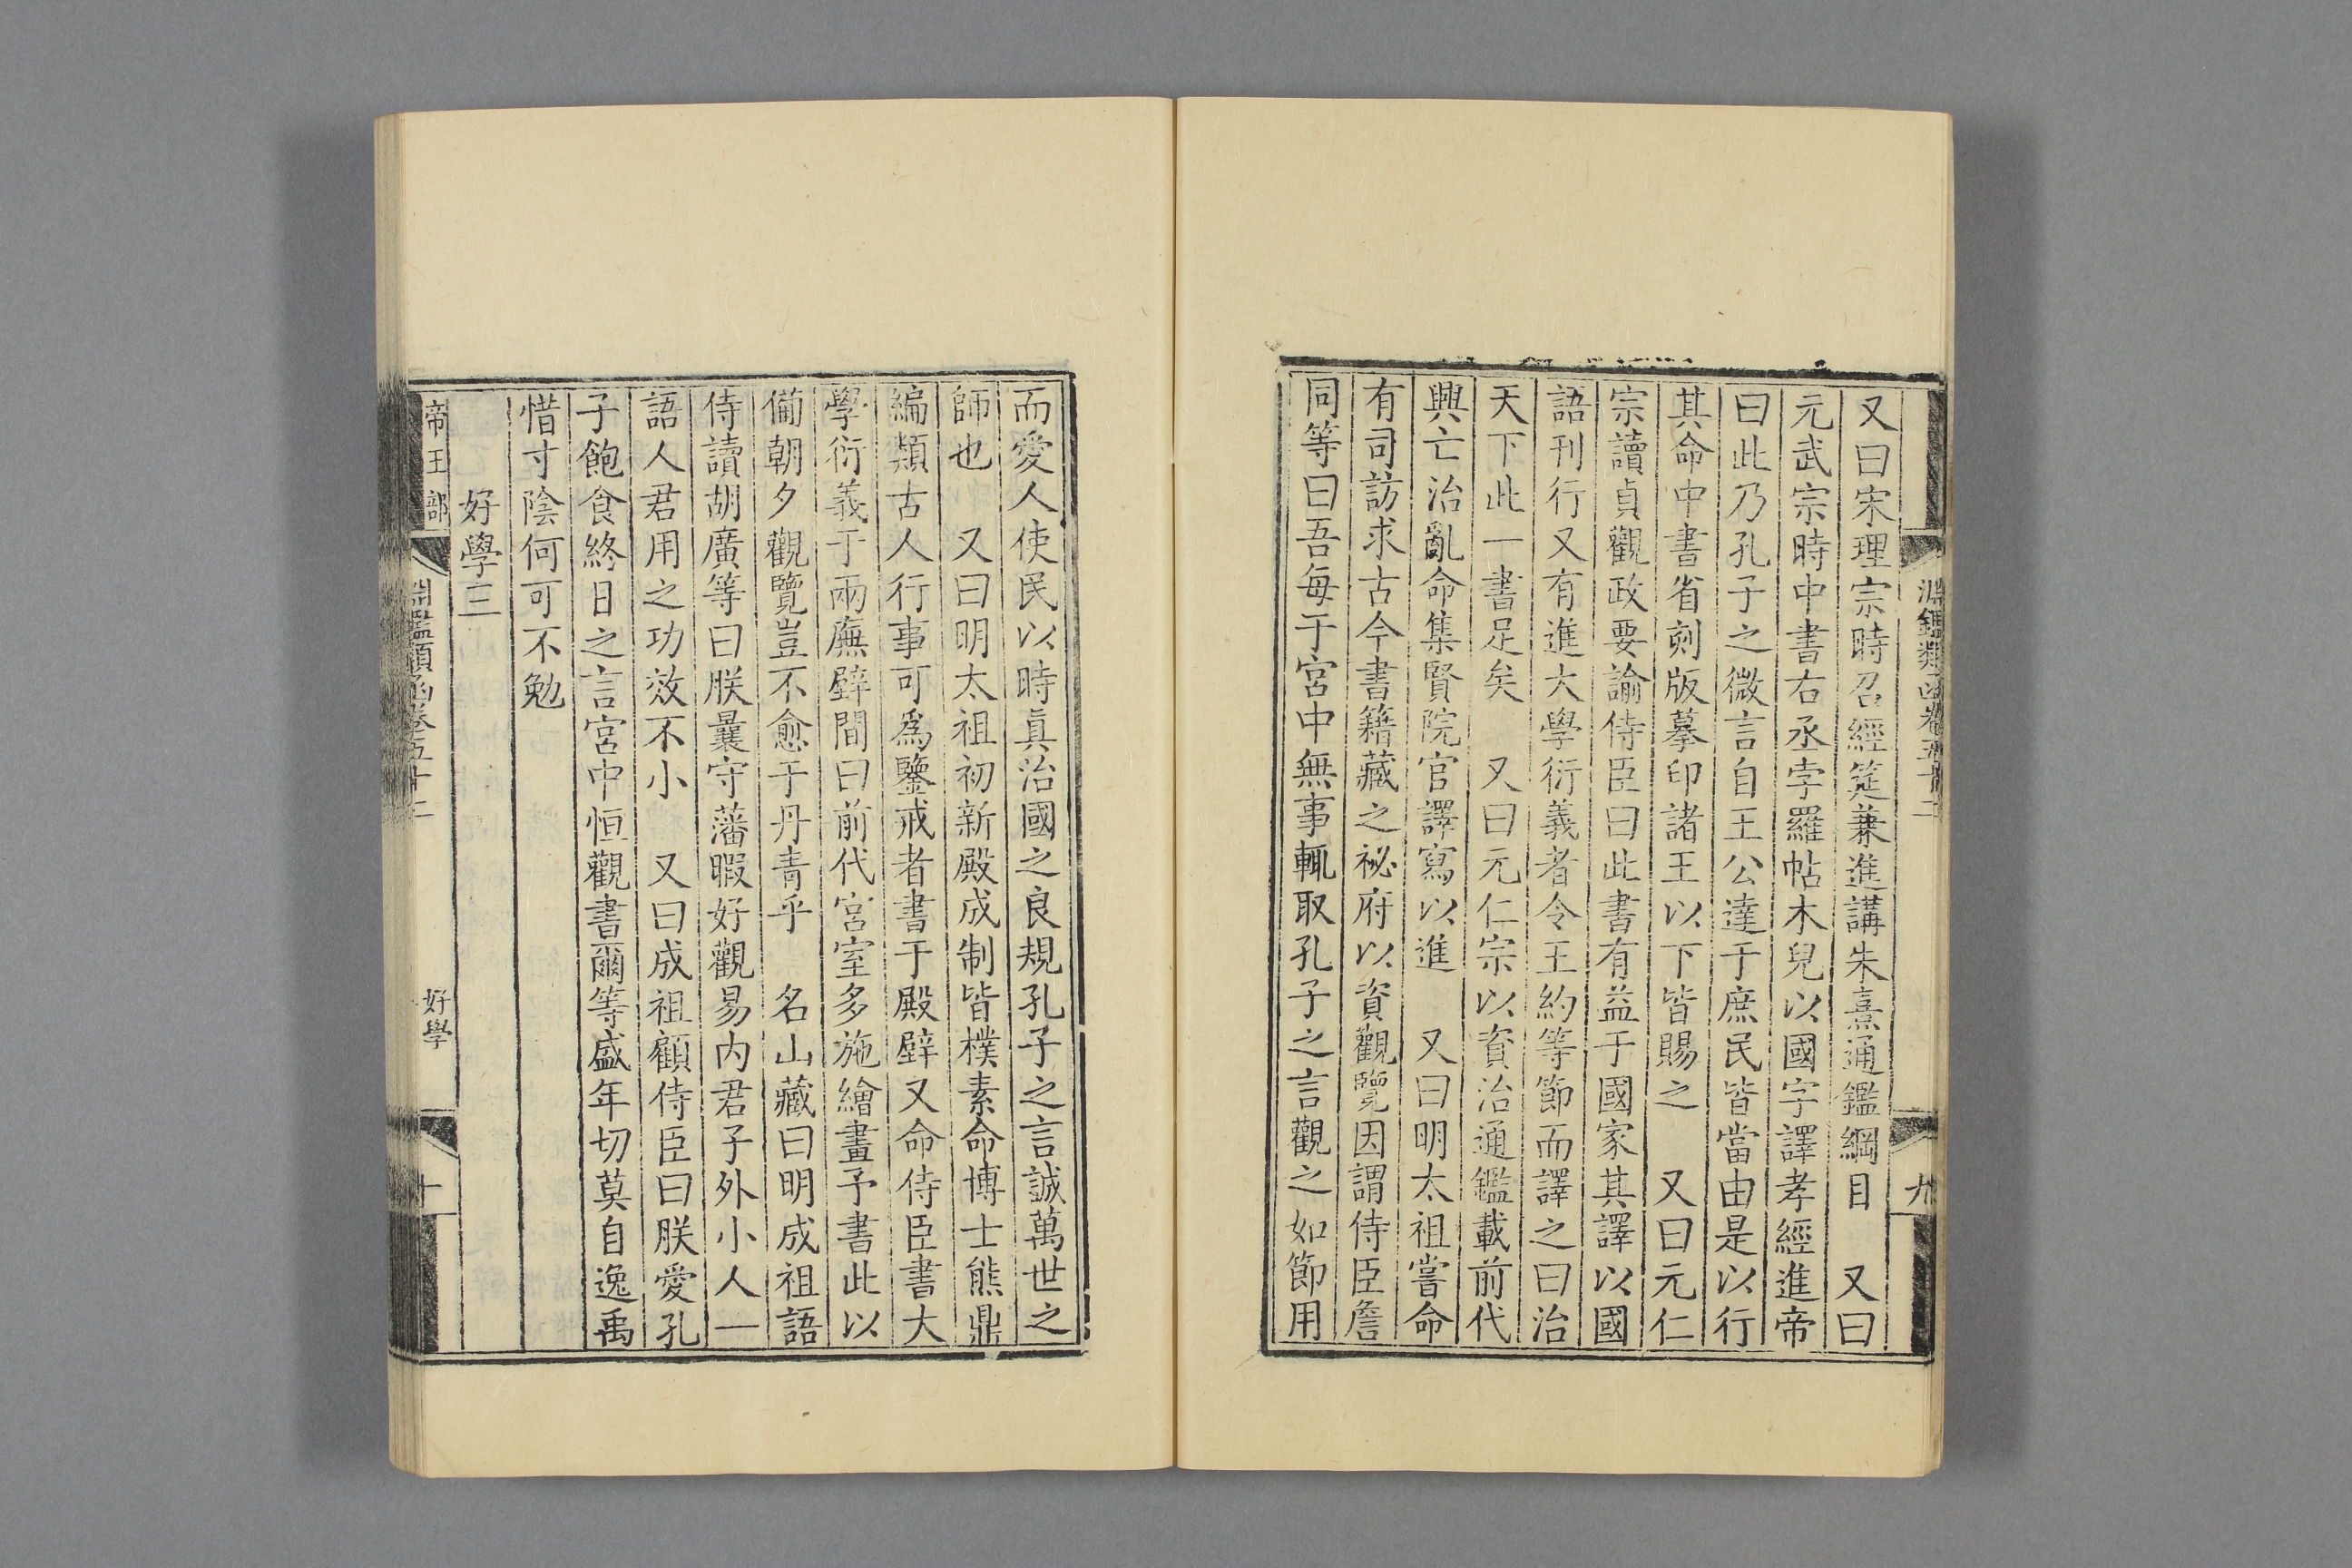 淵鑑類函卷五十二
九
又曰宋理宗時召經筵兼進講朱熹通鑑綱目　又曰
元武宗時中書右丞孛羅帖木兒以國字譯孝經進帝
曰此乃孔子之微言自王公達于庶民皆當由是以行
其命中書省刻版摹印諸王以下皆賜之　又曰元仁
宗讀貞觀政要諭侍臣曰此書有益于國家其譯以國
語刊行又有進大學衍義者令王約等節而譯之曰治
天下此一書足矣　又曰元仁宗以資治通鑑載前代
興亡治亂命集賢院官譯寫以進　又曰明太祖嘗命
有司訪求古今書籍藏之祕府以資觀覽因謂侍臣詹
同等曰吾每于宮中無事輒取孔子之言觀之如節用
而愛人使民以時真治國之良規孔子之言誠萬世之
師也　又曰明太祖初新殿成制皆樸素命博士熊鼎
編類古人行事可為鑒戒者書于殿壁又命侍臣書大
學衍義于兩廡壁間曰前代宮室多施繪畫予書此以
備朝夕觀覽豈不愈于丹青乎　名山藏曰明成祖語
侍讀胡廣等曰朕曩守藩暇好觀易內君子外小人一
語人君用之功效不小　又曰成祖顧侍臣曰朕愛孔
子飽食終日之言宮中恒觀書爾等盛年切莫自逸禹
惜寸陰何可不勉
好學三
帝王部
淵鑑類函卷五十二
好學
十